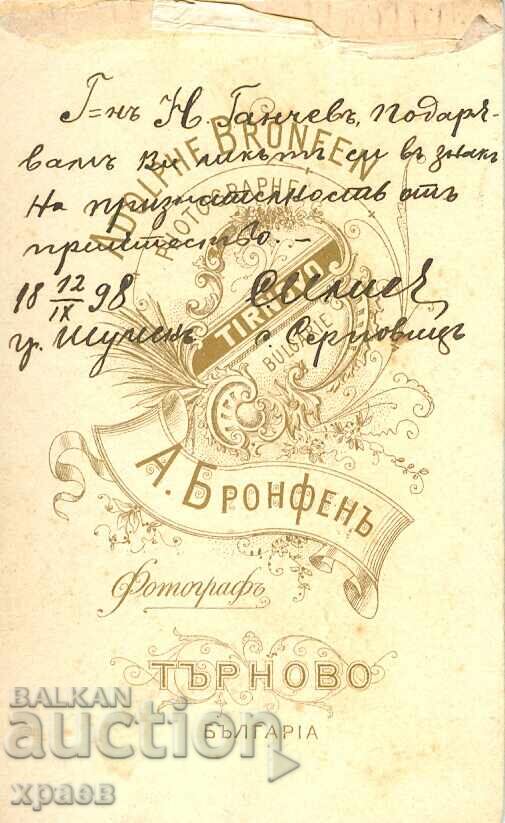 Г=нъ Н. Ганчевъ, подаря-
вамъ Ви ликътъ си въ знакъ
на признателность отъ
приятелство. –
18 12/IX 98
гр. Шуменъ с. Серповицъ
ADOLPHE BRONFEEN
PHOTOGRAPHE
TIRNOVO
BULGARIE
А. БРОНФЕНЪ
Фотографъ
ТЪРНОВО
БЪЛГАРІА
BALKAN
auction
храов